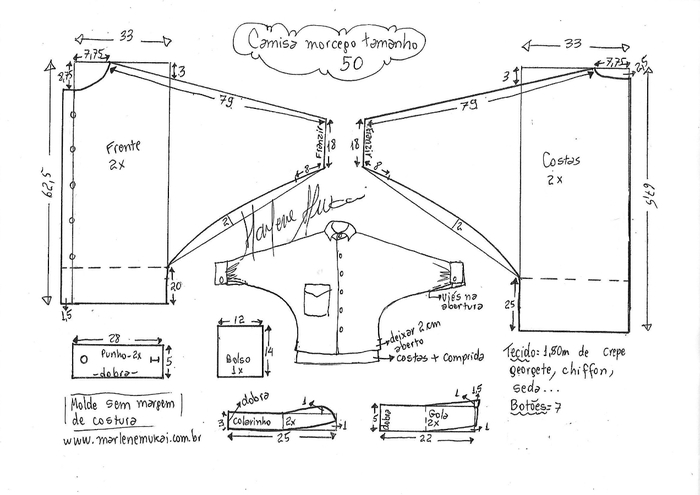 Camisa morcego tamanho
50
33
7,75
8,75
3
79
Frente
2x
Franzir
18
8
2
62,5
20
1,5
33
7,75
2,5
3
79
Costas
2x
Franzir
18
8
2
67,5
25
Marlene Mukai
Viés na
abertura
deixar 2 cm
aberto
costas + comprida
28
Punho-2x
-dobra-
5
12
Bolso
1x
14
Tecido: 1,80m de crepe
georgete, chiffon,
seda...
Botões=7
Molde sem margem
de costura
www.marlenemukai.com.br
dobra
1
3
Colarinho
2x
1
25
1
1,5
5
dobra
Gola
2x
1
22